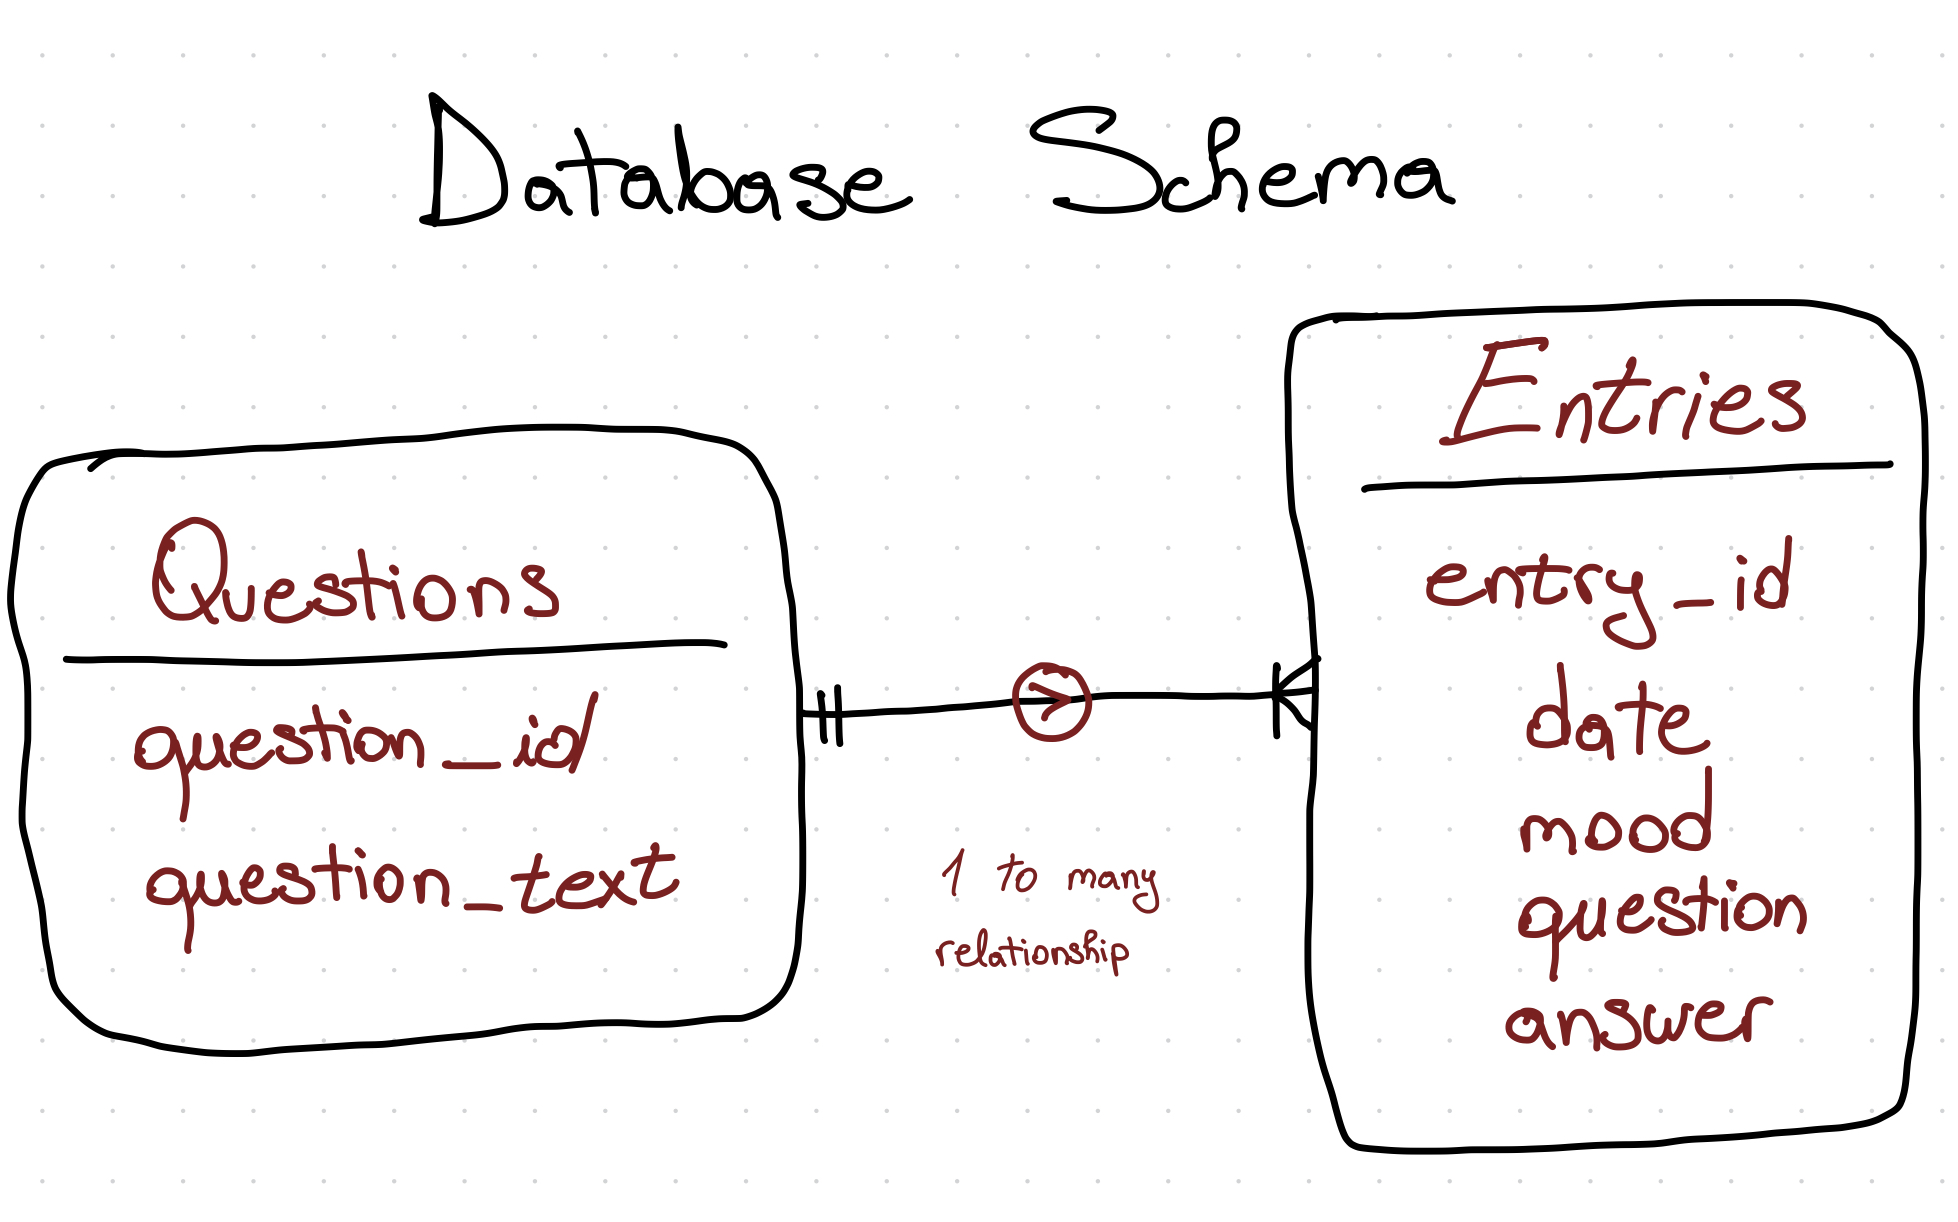 Database Schema
Questions
question_id
question_text
1 to many
relationship
Entries
entry_id
date
mood
question
answer